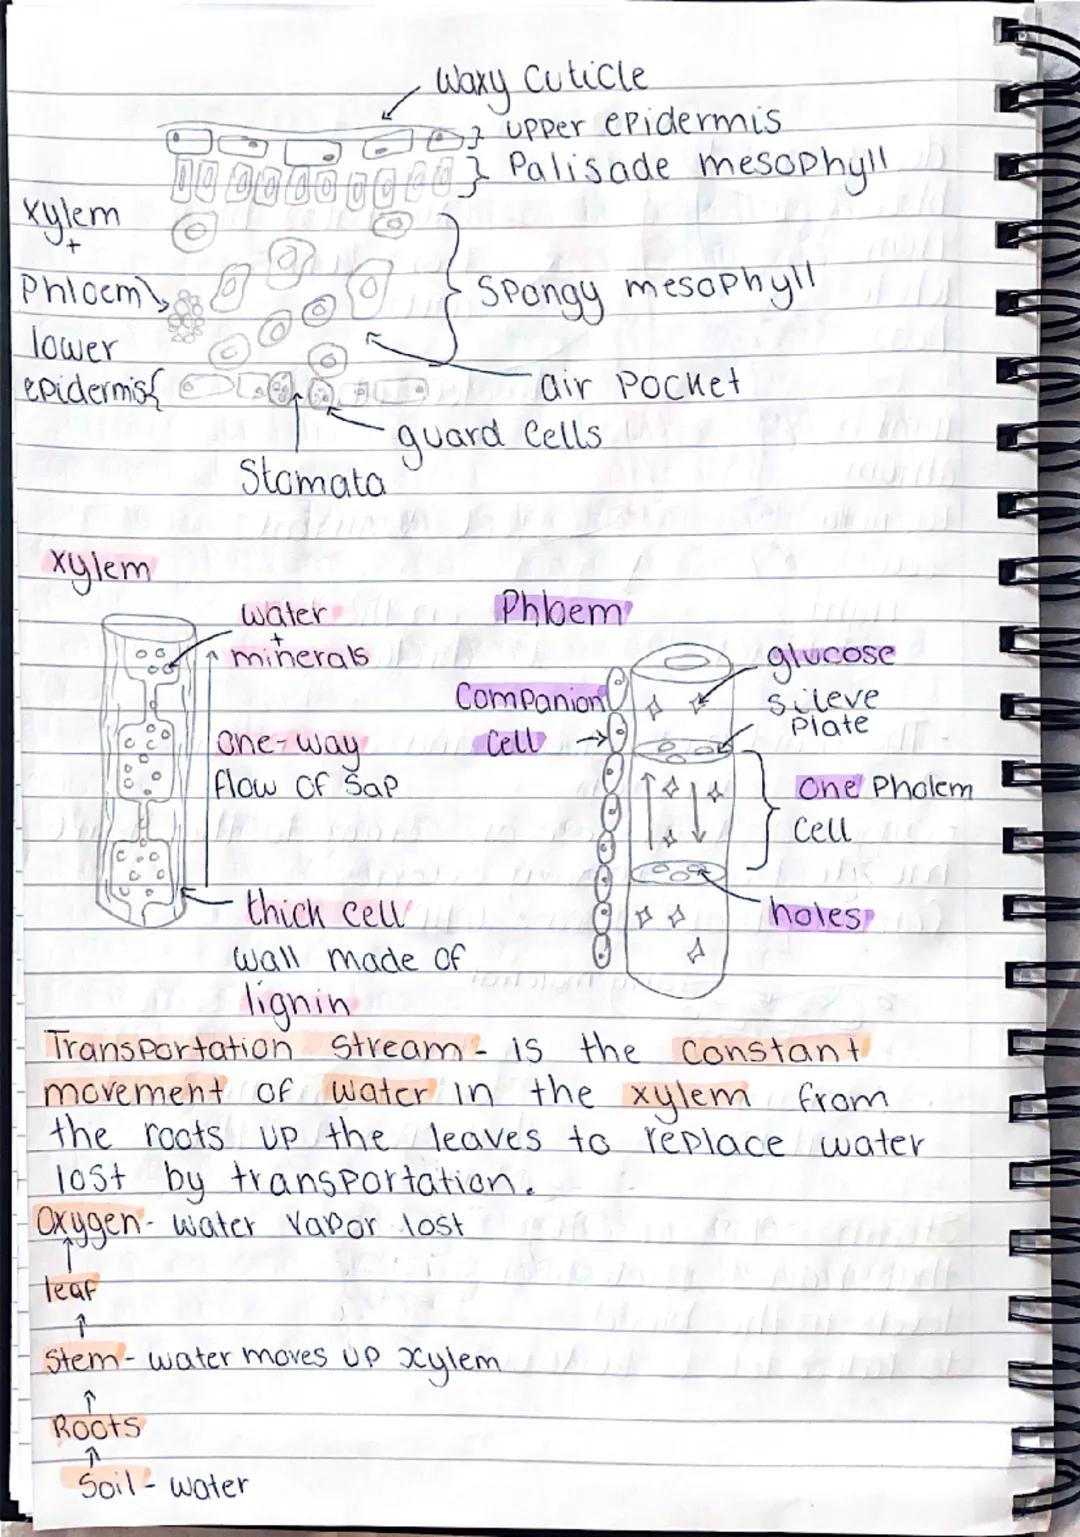 Waxy Cuticle
upper epidermis
Palisade mesophyll
xylem
+
Phloem
Spongy mesophyll
lower
epidermis
air Pocket
guard Cells
Stomata
xylem
water
+
minerals
Phloem
glucose
Companion
Cell
sileve
Plate
one-way
flow of Sap
One Pholem
Cell
thick cell
wall made of
lignin
holes
Transportation Stream - is the Constant
movement of water in the xylem from
the roots up the leaves to replace water
lost by transportation.
Oxygen - water vapor lost
leaf
Stem - water moves up xylem
Roots
Soil - water